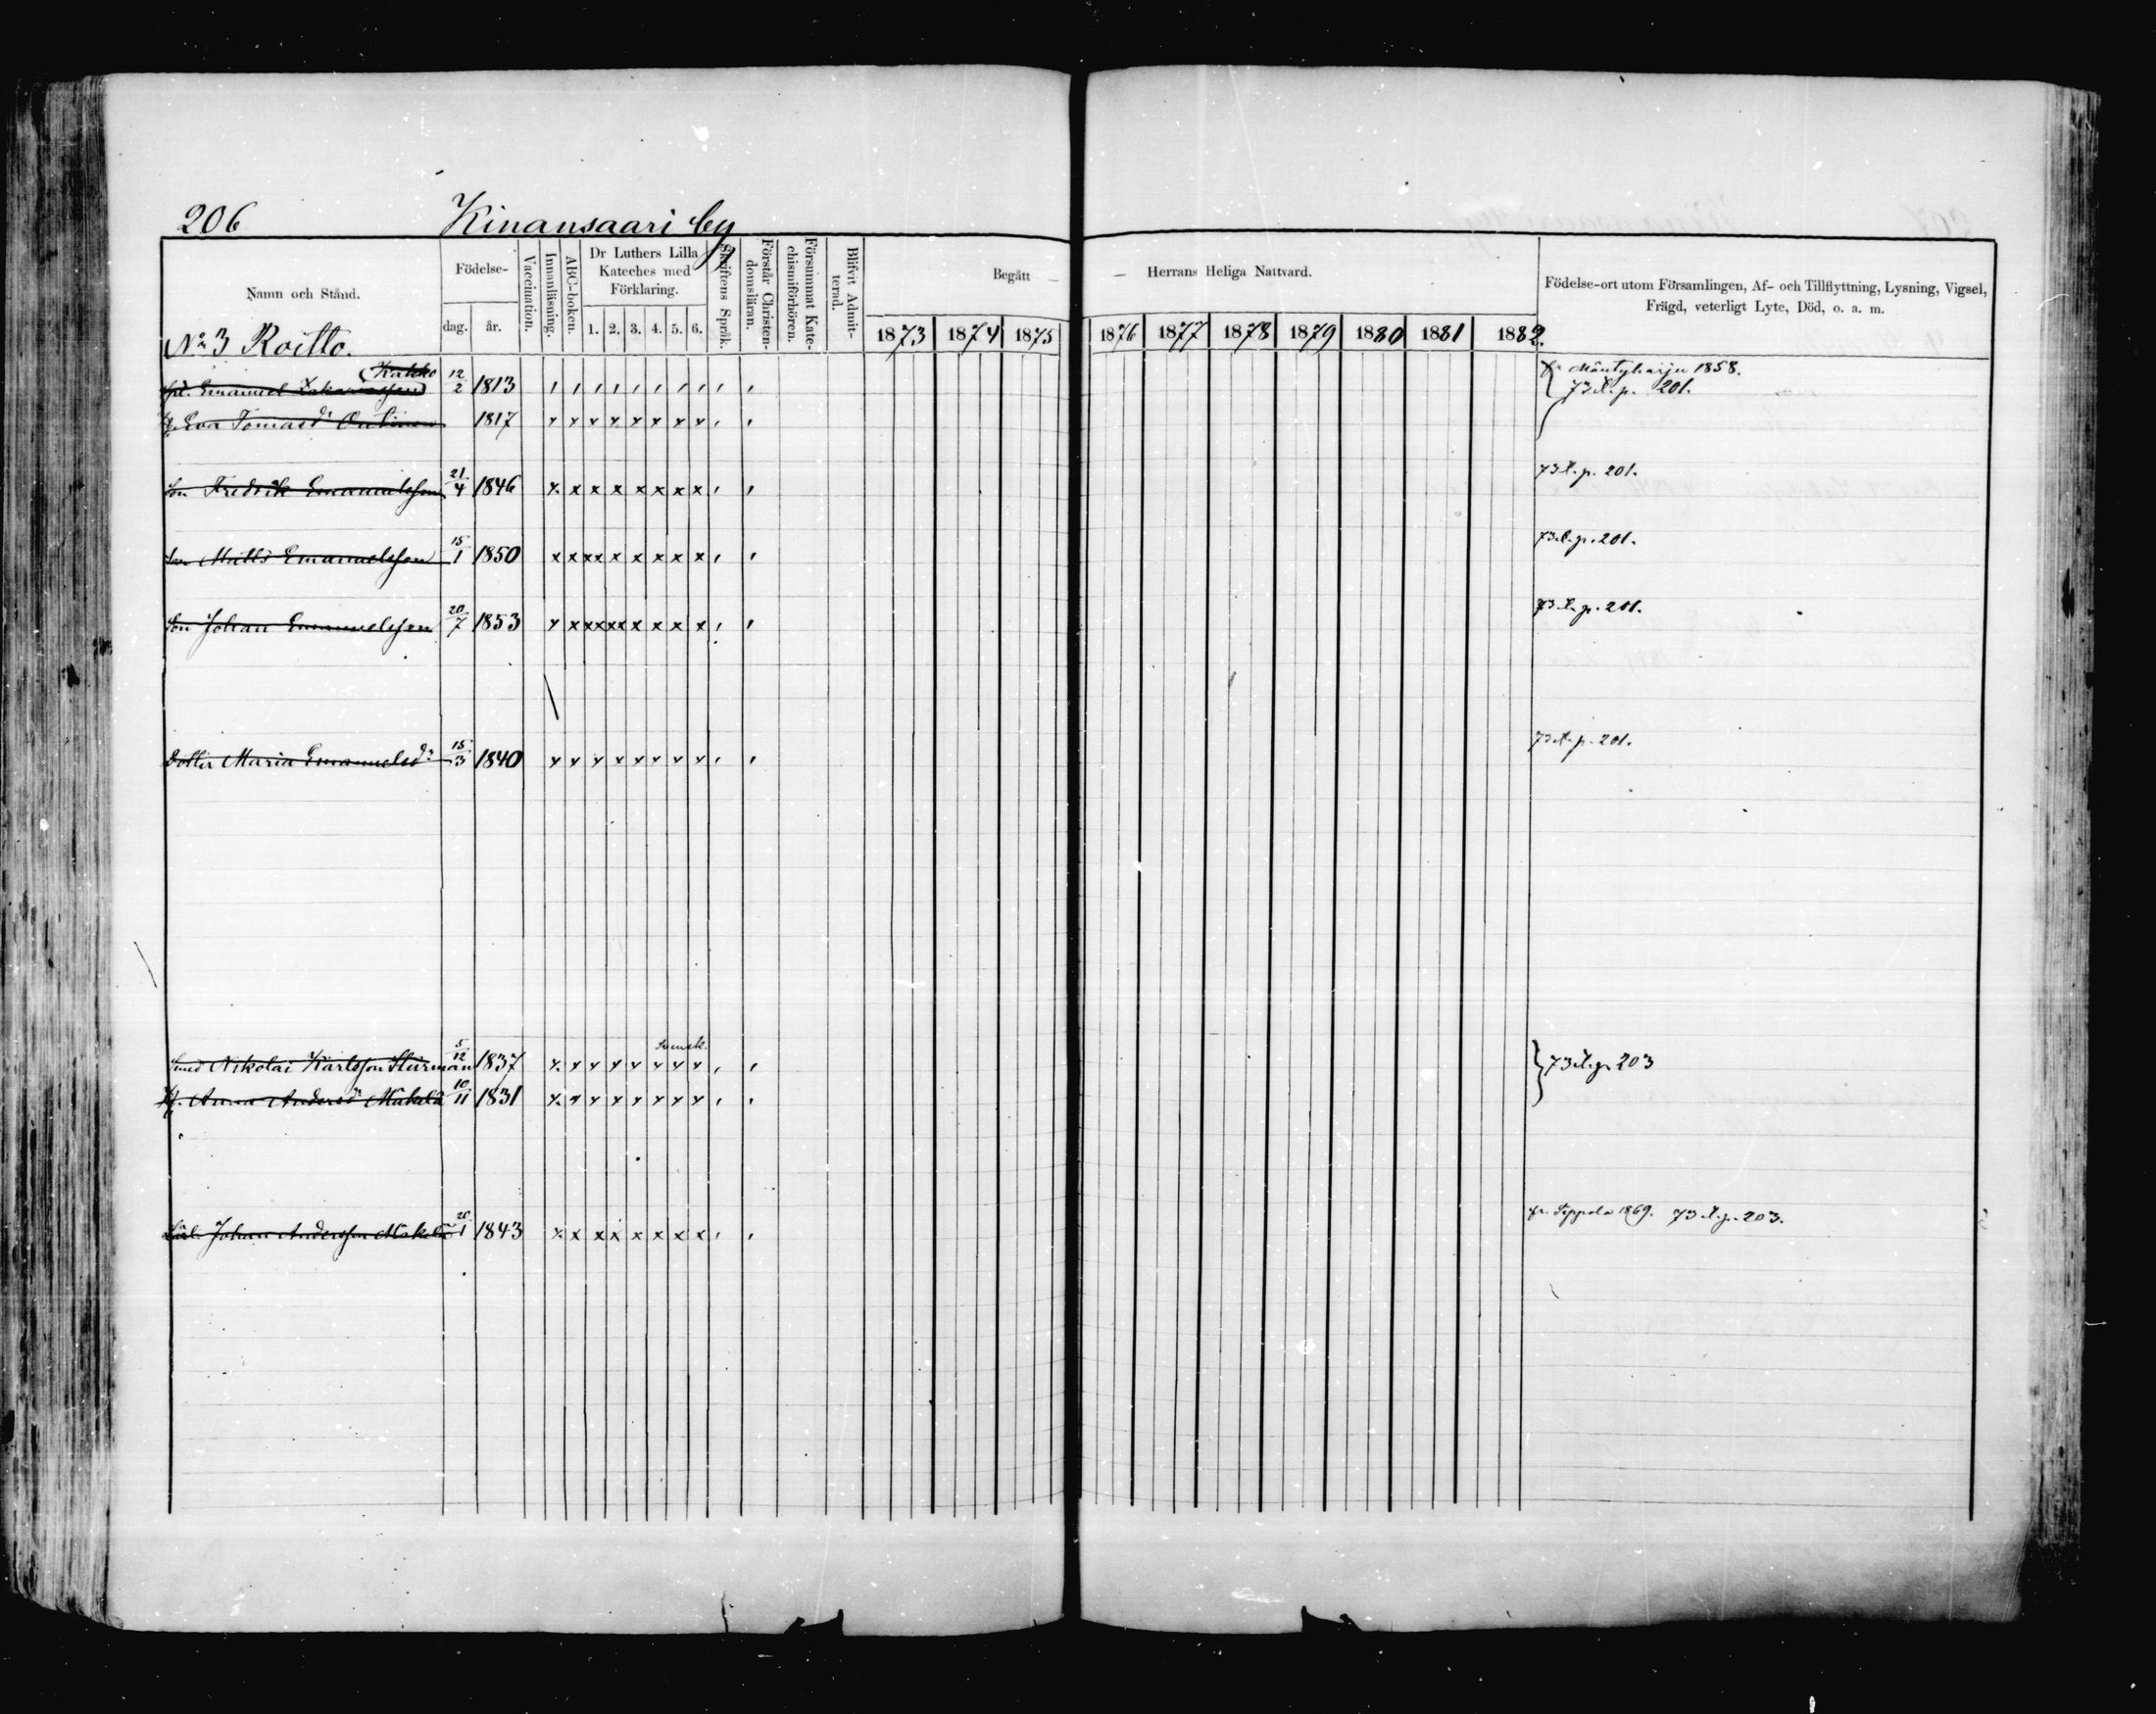 206 Kinansaari by
Namn och Stånd.
Födelse-
dag. år.
Vaccination.
Innanläsning.
ABC-boken.
Dr Luthers Lilla
Kateches med
Förklaring.
1. 2. 3. 4. 5. 6.
Skriftens Språk.
Förstår Christen-
domsläran.
Försummat Kate-
chismiförhören.
Blifvit Admit-
terad.
Begått — — Herrans Heliga Nattvard.
1873 1874 1875 1876 1877 1878 1879 1880 1881 1882.
Födelse-ort utom Församlingen, Af- och Tillflyttning, Lysning, Vigsel,
Frägd, veterligt Lyte, Död, o. a. m.
No 3 Roitto.
Emanuel 12/2 1813 fr Mäntyharju 1858.
73 l. p. 201.
h. Eva Tomasd 1817
Son Fredrik Emanuelsson 21/4 1846 73 l. p. 201.
Son Matts Emanuelsson 15/1 1850 73 l. p. 201.
Son Johan Emanuelsson 20/7 1853 73 l. p. 201.
Dotter Maria Emanuelsdr 15/3 1840 73 l. p. 201.
Svensk.
Smed Nikolai Karlsson Stürman 5/12 1837 73 l. p. 203
H. Anna Andersdr Mäkelä 10/11 1831
Johan Andersson Mäkelä 1843 fr. Seppola 1869. 73 l. p. 203.